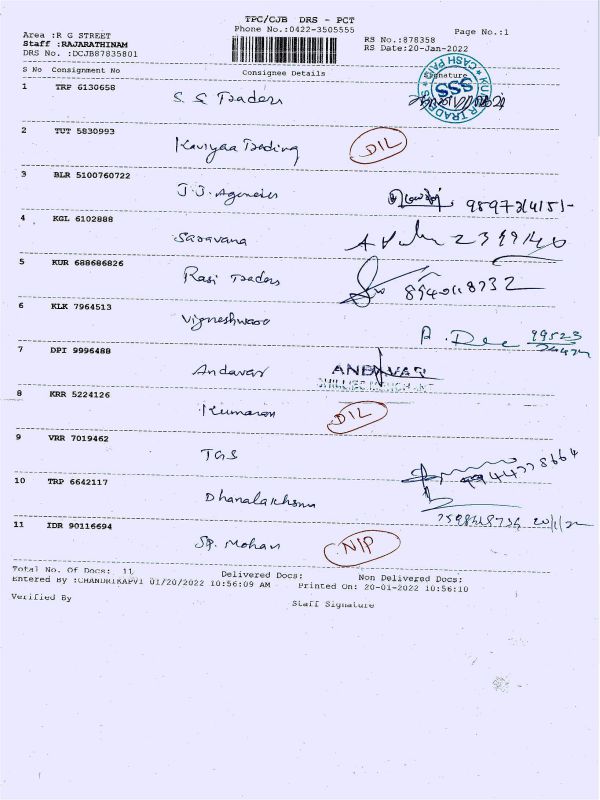 TPC/CJB DRS - PCT
Phone No.:0422-3505555
Page No.:1
Area :R G STREET
Staff :RAJARATHINAM
DRS No. :DCJB87835801
RS No.:878358
RS Date:20-Jan-2022
S No Consignment No Consignee Details Signature
1 TRP 6130658 S. S Traders
KUMAR TRADERS SSS CASH PAID
2 TUT 5830993 Kaviyaa Trading DIL
3 BLR 5100760722 J.J. Agencies
4 KGL 6102888 Saravana
5 KUR 688686826 Rasi Traders 8940118732
6 KLK 7964513 Vigneshwara
7 DPI 9996488 Andavar ANDAVAR
8 KRR 5224126 Kumaran DIL
9 VRR 7019462 TGS
10 TRP 6642117 Dhanalakshmi 20/1/22
11 IDR 90116694 Sp. Mohan N/P
Total No. Of Docs: 11 Delivered Docs: Non Delivered Docs:
Entered By :CHANDRIKAPV1 01/20/2022 10:56:09 AM Printed On: 20-01-2022 10:56:10
Verified By Staff Signature